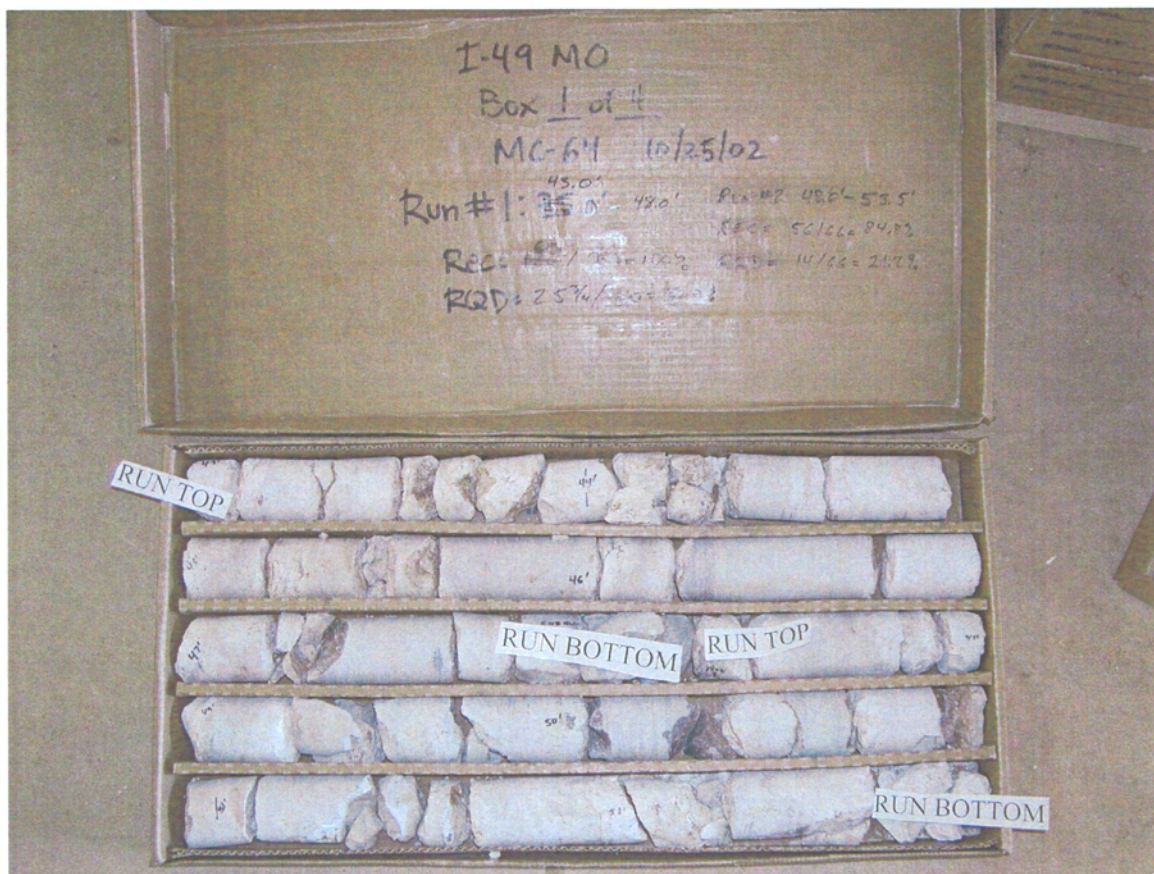 I-49 MO
Box 1 of 4
MC-64 10/25/02
43.0'
Run #1: 48.0'
Run #2 48.0'-53.5'
REC= 56/66= 84.8%
Rec= 100%
RQD= 14/66= 21.2%
RQD= 25 3/4/
RUN TOP
44'
45'
46'
47'
RUN BOTTOM
RUN TOP
49'
50'
RUN BOTTOM